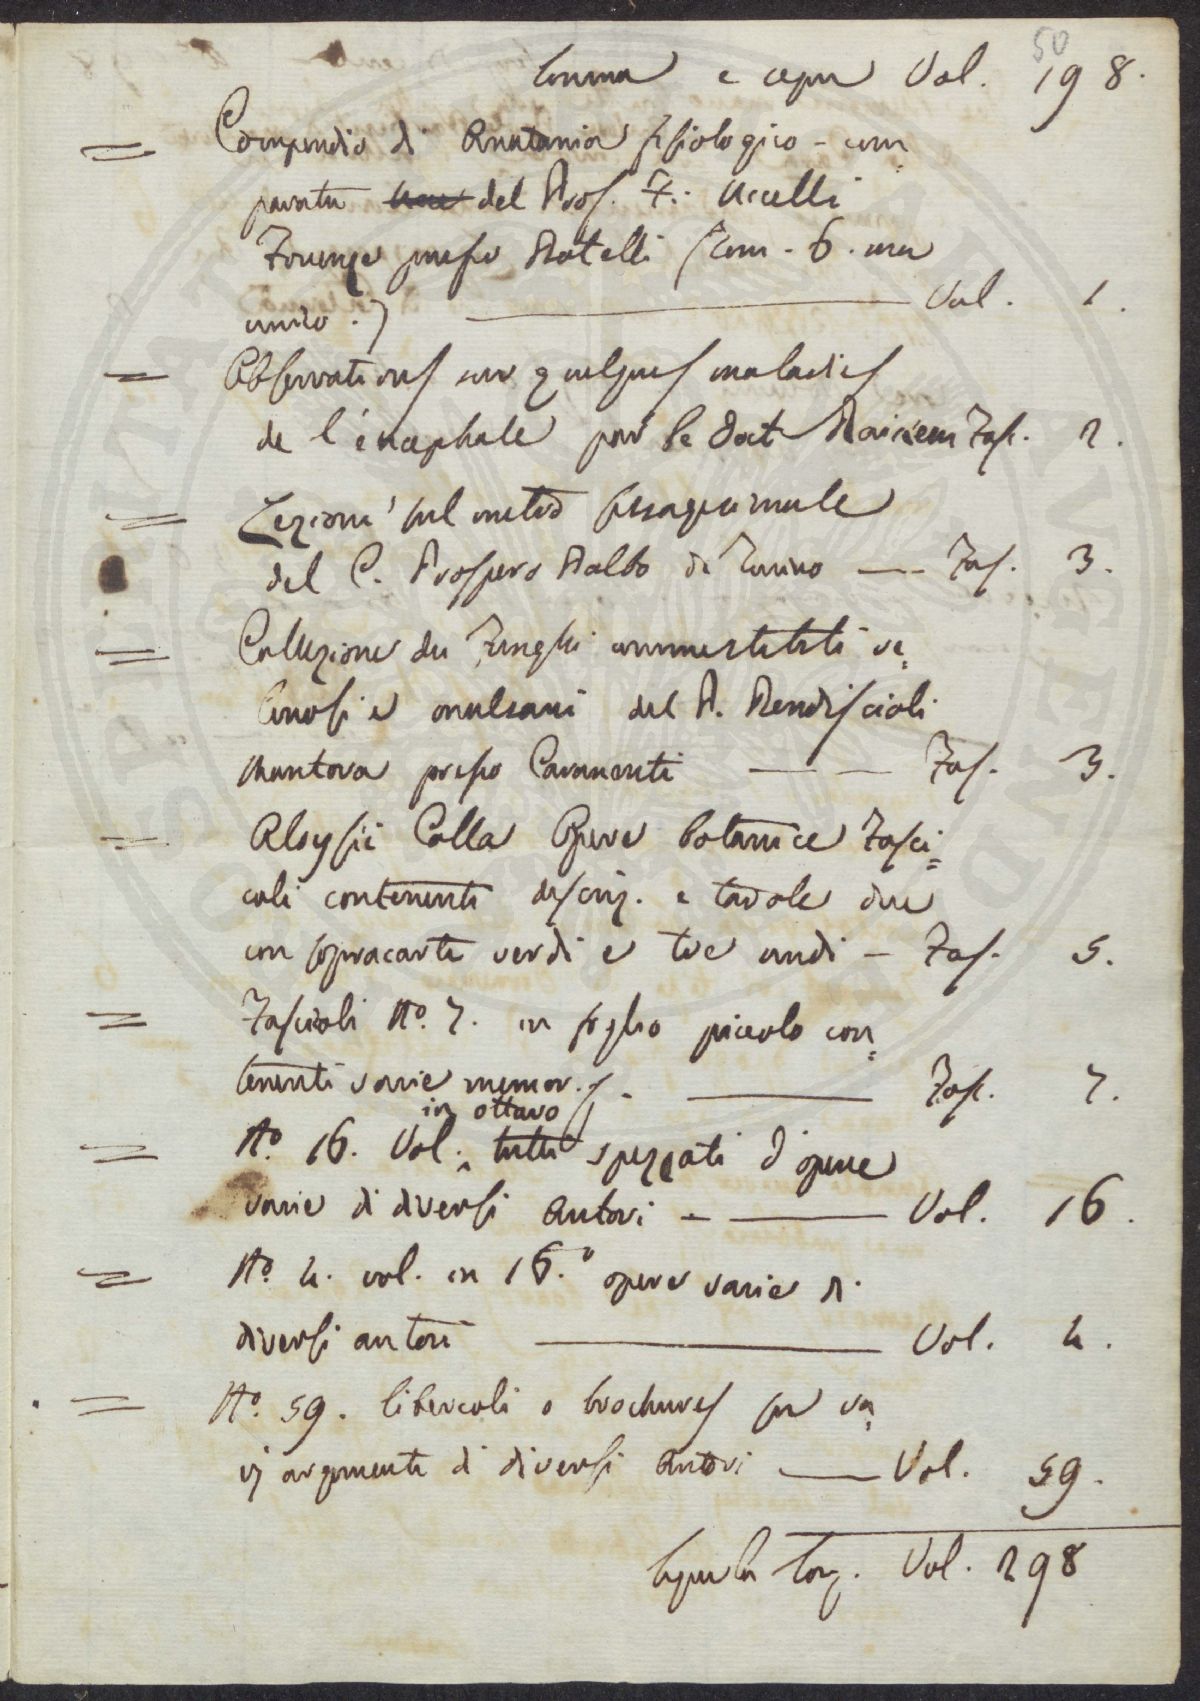 50
Somma e segue Vol. 198.
= Compendio di Anatomia fisiologico - com=
parata del Prof. F. Uccelli
Firenze presso Batelli (Tom. 6. ma
unico.) Vol. 1.
= Observations sur quelques maladies
de l'éncephale par le Doct Raikem Fasc. 2.
= Lezioni sul metodo sessagesimale
del C. Prospero Balbo di Torino — Fas. 3.
= Collezione dei Funghi commestibili ve=
lenosi e malsani del P. Bendiscioli
Mantova presso Caranenti — — Fas. 3.
= Aloysii Colla Opere botanice Fasci=
coli contenenti descriz. e tavole due
con sopracarte verdi e tre nudi — Fas. 5.
= Fascicoli No. 7. in foglio piccolo con=
tenenti varie memor. — Fasc. 7.
in ottavo
= No. 16. Vol. tutti spezzati d'opere
varie di diversi Autori — Vol. 16.
= No. 4. vol. in 16.º opere varie di
diversi autori — Vol. 4.
= No. 59. libercoli o brochures su va=
rj argomenti di diversi Autori — Vol. 59.
Segue la Vol. 298